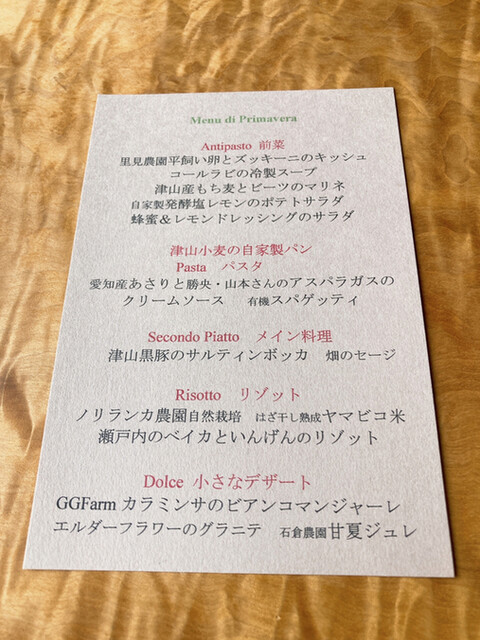 Menu di Primavera
Antipasto 前菜
里見農園平飼い卵とズッキーニのキッシュ
コールラビの冷製スープ
津山産もち麦とビーツのマリネ
自家製発酵塩レモンのポテトサラダ
蜂蜜＆レモンドレッシングのサラダ
津山小麦の自家製パン
Pasta パスタ
愛知産あさりと勝央・山本さんのアスパラガスの
クリームソース 有機スパゲッティ
Secondo Piatto メイン料理
津山黒豚のサルティンボッカ 畑のセージ
Risotto リゾット
ノリランカ農園自然栽培 はざ干し熟成ヤマビコ米
瀬戸内のベイカといんげんのリゾット
Dolce 小さなデザート
GGFarm カラミンサのビアンコマンジャーレ
エルダーフラワーのグラニテ 石倉農園甘夏ジュレ